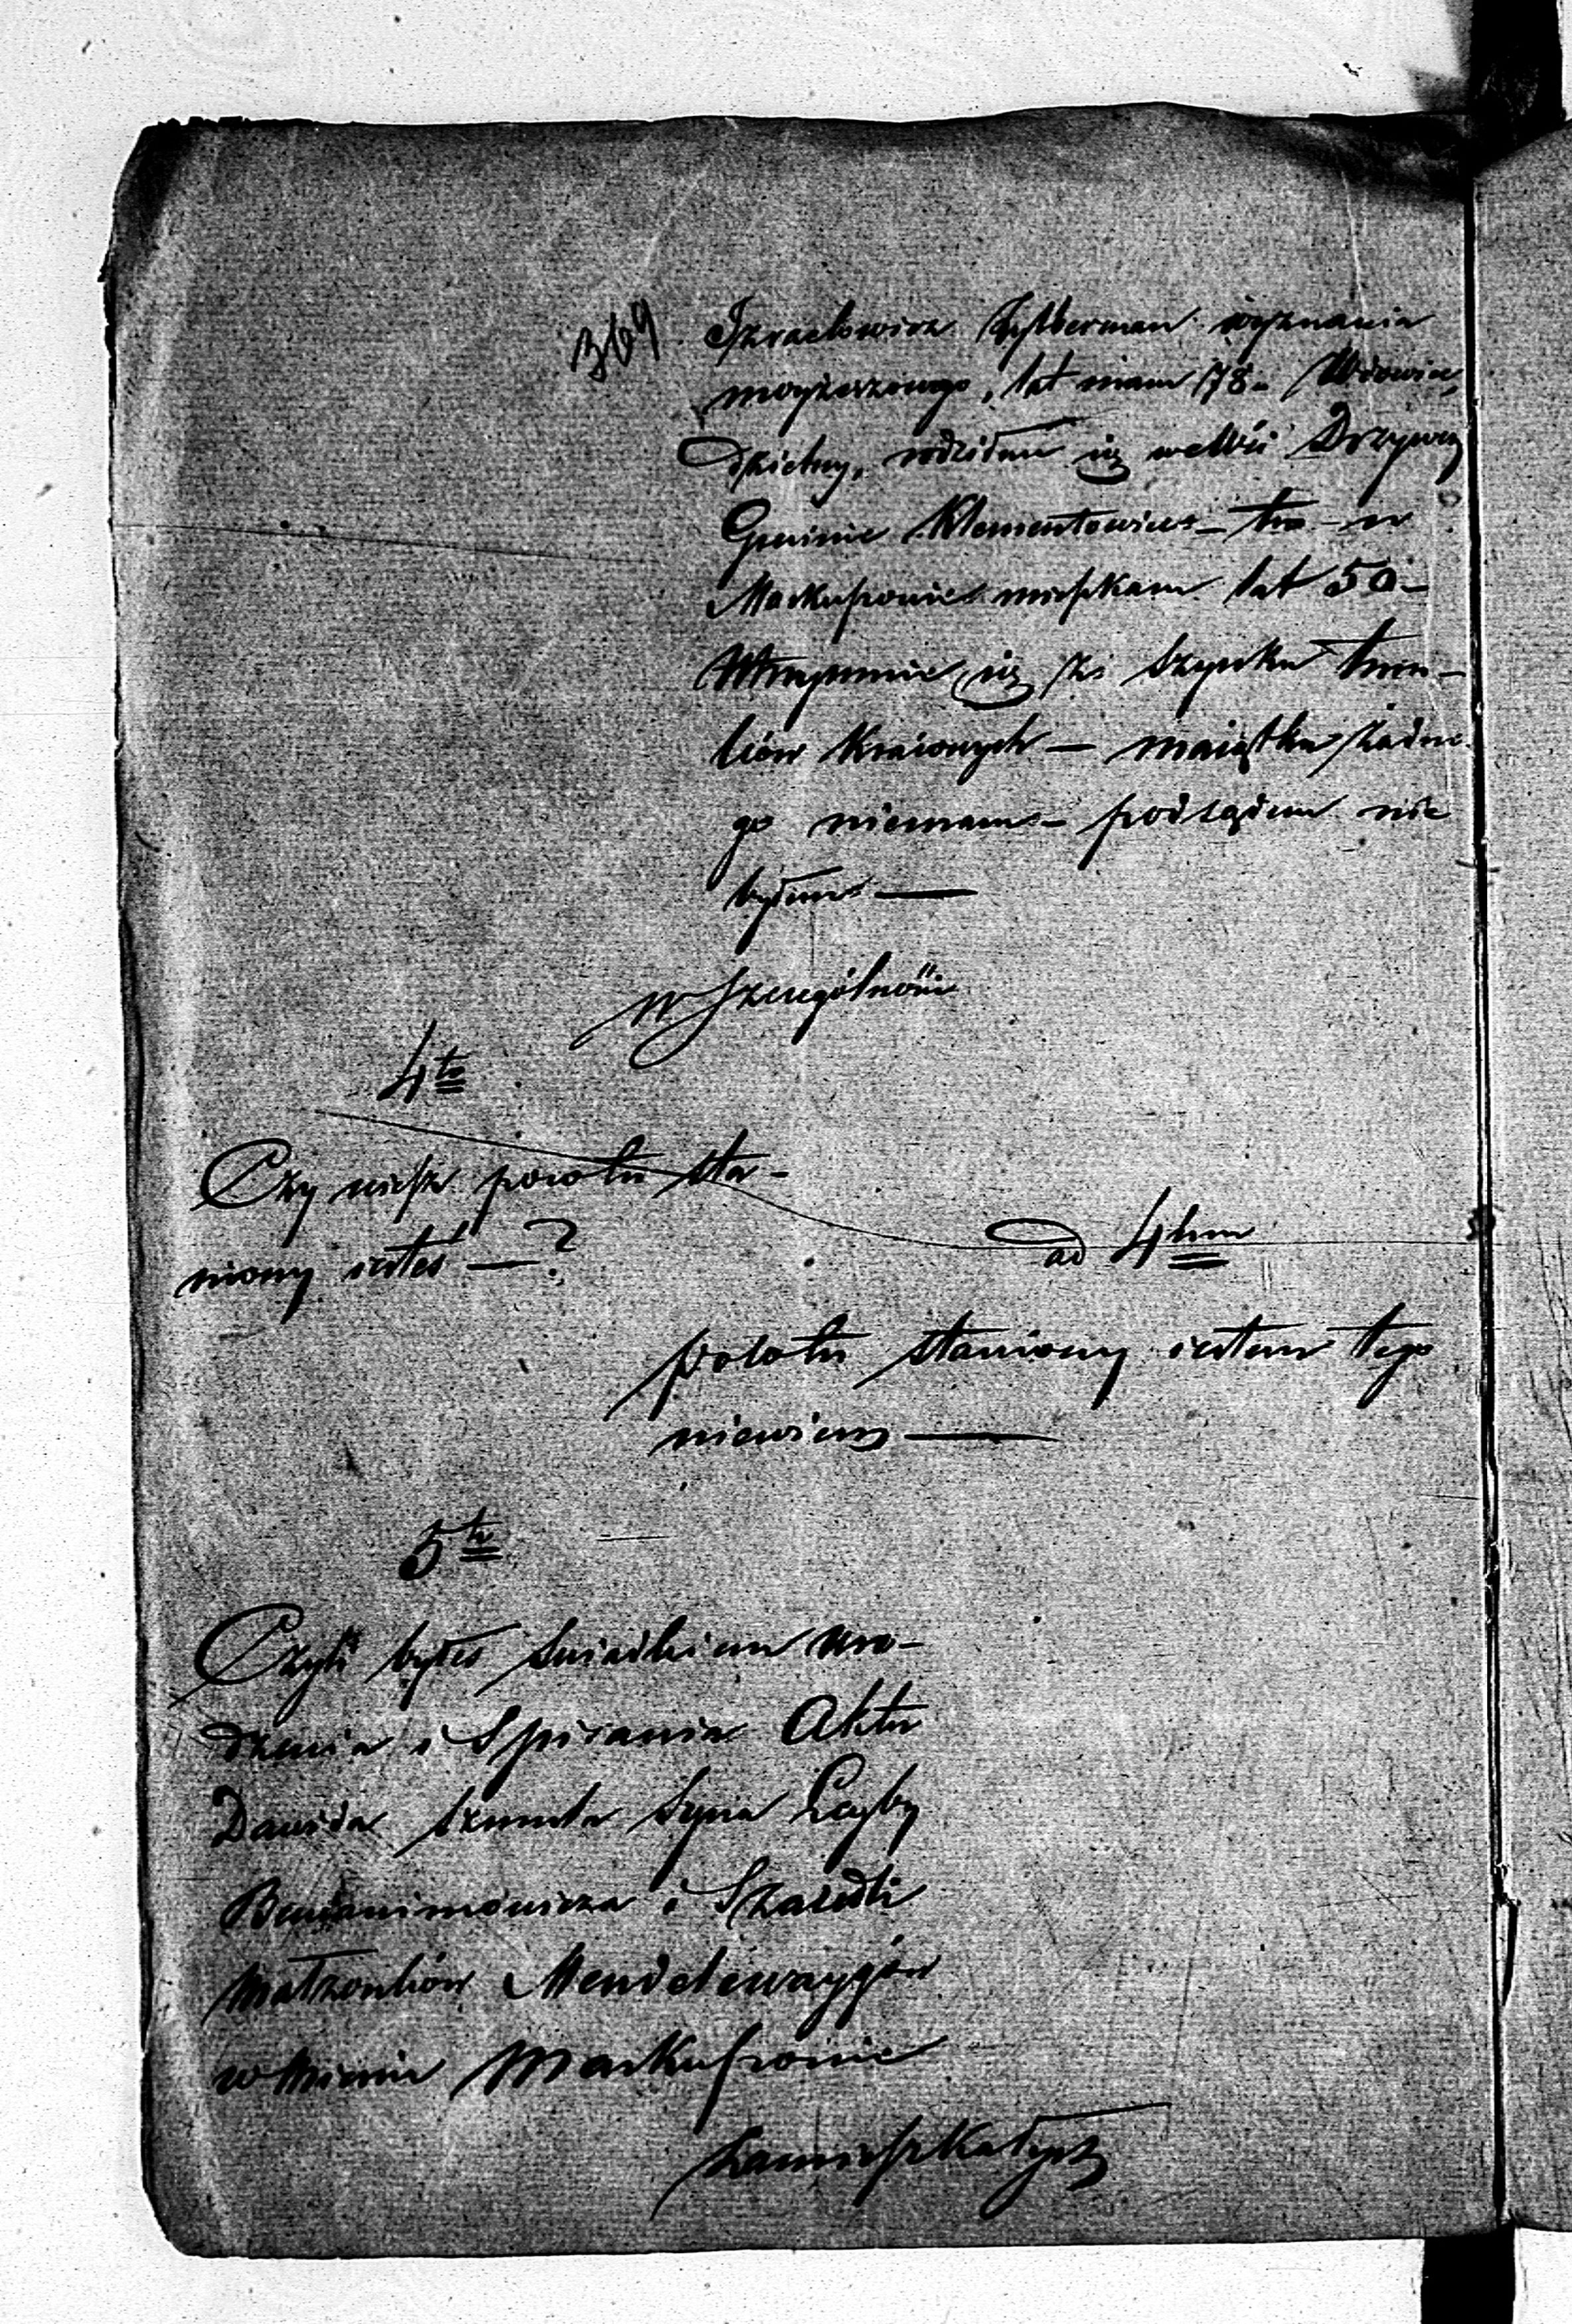 369
Izraelowicz Zylberman wyznania
moyżeszowego, lat mam 78. Wdowiec,
dzietny, rodziłem się we Wsi Drzewcy
Gminie Klementowice – tu – w
Markuszowie mieszkam lat 50 –
Utrzymuie się ze Szynku trun–
ków Kraiowych – maiątku żadne
go niemam – pod sądem nie
byłem —
w Szczególności
4to
Czy wiesz pocoś tu sta–
wiony iesteś —?
ad 4tum
poco tu stawiony iestem tego
niewiem —
5to
Czyli byłeś Swiadkiem Uro–
dzenia i Spisania Aktu
Dawida Szmula Syna Layby
Beniaminowicza i Szaindli
Małżonków Mendelewayggów
w Mieście Markuszowie
Zamieszkałych